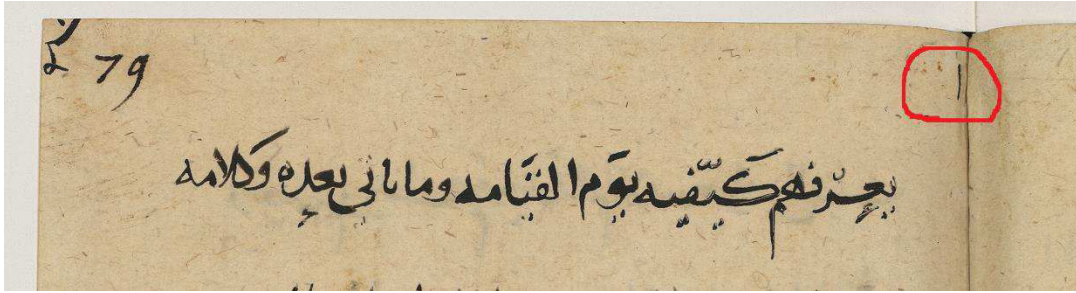 ا 79
يعرّفهم كَيّفيه يوَم القيَامه وما ياتي بعده وَكلامه